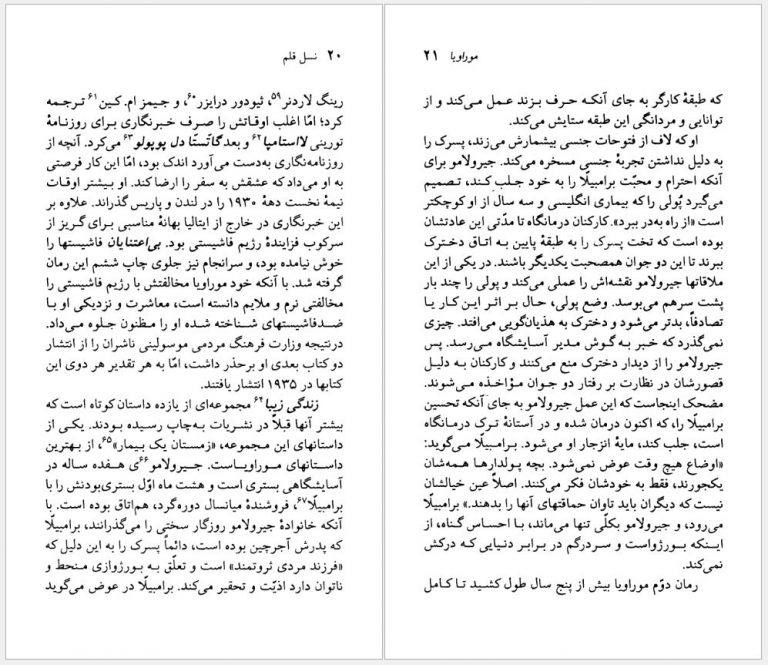 ۲۰ نسل قلم
رینگ لاردنر۵۹، ثیودور درایزر۶۰، و جیمز ام. کین۶۱ ترجمه
کرد؛ امّا اغلب اوقاتش را صرف خبرنگاری برای روزنامهٔ
تورینی لااستامپا۶۲ و بعد گاتّستّا دل پوپولو۶۳ می‌کرد. آنچه از
روزنامه‌نگاری به‌دست می‌آورد اندک بود، امّا این کار فرصتی
به او می‌داد که عشقش به سفر را ارضا کند. او بیشتر اوقات
نیمهٔ نخست دههٔ ۱۹۳۰ را در لندن و پاریس گذراند. علاوه بر
این خبرنگاری در خارج از ایتالیا بهانهٔ مناسبی برای گریز از
سرکوب فزایندهٔ رژیم فاشیستی بود. بی‌اعتنایان فاشیستها را
خوش نیامده بود، و سرانجام نیز جلوی چاپ ششم این رمان
گرفته شد. با آنکه خود موراویا مخالفتش با رژیم فاشیستی را
مخالفتی نرم و ملایم دانسته است، معاشرت و نزدیکی او با
ضدفاشیستهای شناخته شده او را مظنون جلوه می‌داد.
درنتیجه وزارت فرهنگ مردمی موسولینی ناشران را از انتشار
دو کتاب بعدی او برحذر داشت، امّا به هر تقدیر هر دوی این
کتابها در ۱۹۳۵ انتشار یافتند.
زندگی زیبا۶۴ مجموعه‌ای از یازده داستان کوتاه است که
بیشتر آنها قبلاً در نشریات به‌چاپ رسیده بودند. یکی از
داستانهای این مجموعه، «زمستان یک بیمار»۶۵، از بهترین
داستانهای موراویاست. جیرولامو۶۶ی هفده ساله در
آسایشگاهی بستری است و هشت ماه اوّل بستری‌بودنش را با
برامبیلّا۶۷، فروشندهٔ میانسال دوره‌گرد، هم‌اتاق بوده است. با
آنکه خانوادهٔ جیرولامو روزگار سختی را می‌گذرانند، برامبیلّا
که پدرش آجرچین بوده است، دائماً پسرک را به این دلیل که
«فرزند مردی ثروتمند» است و تعلّق به بورژوازی منحط و
ناتوان دارد اذیّت و تحقیر می‌کند. برامبیلّا در عوض می‌گوید
موراویا ۲۱
که طبقهٔ کارگر به جای آنکه حرف بزند عمل می‌کند و از
توانایی و مردانگی این طبقه ستایش می‌کند.
او که لاف از فتوحات جنسی بیشمارش می‌زند، پسرک را
به دلیل نداشتن تجربهٔ جنسی مسخره می‌کند. جیرولامو برای
آنکه احترام و محبّت برامبیلّا را به خود جلب کند، تصمیم
می‌گیرد پُولی را که بیماری انگلیسی و سه سال از او کوچکتر
است «از راه به‌در ببرد». کارکنان درمانگاه تا مدّتی این عادتشان
بوده است که تخت پسرک را به طبقهٔ پایین به اتاق دخترک
ببرند تا این دو جوان همصحبت یکدیگر باشند. در یکی از این
ملاقاتها جیرولامو نقشه‌اش را عملی می‌کند و پولی را چند بار
پشت سرهم می‌بوسد. وضع پولی، حال بر اثر این کار یا
تصادفاً، بدتر می‌شود و دخترک به هذیان‌گویی می‌افتد. چیزی
نمی‌گذرد که خبر به گوش مدیر آسایشگاه می‌رسد. پس
جیرولامو را از دیدار دخترک منع می‌کنند و کارکنان به دلیل
قصورشان در نظارت بر رفتار دو جوان مؤاخذه می‌شوند.
مضحک اینجاست که این عمل جیرولامو به جای آنکه تحسین
برامبیلّا را، که اکنون درمان شده و در آستانهٔ ترک درمانگاه
است، جلب کند، مایهٔ انزجار او می‌شود. برامبیلّا می‌گوید:
«اوضاع هیچ وقت عوض نمی‌شود. بچه پولدارها همه‌شان
یکجورند، فقط به خودشان فکر می‌کنند. اصلاً عین خیالشان
نیست که دیگران باید تاوان حماقتهای آنها را بدهند.» برامبیلّا
می‌رود، و جیرولامو بکلّی تنها می‌ماند، با احساس گناه، از
اینکه بورژواست و سردرگم در برابر دنیایی که درکش
نمی‌کند.
رمان دوّم موراویا بیش از پنج سال طول کشید تا کامل